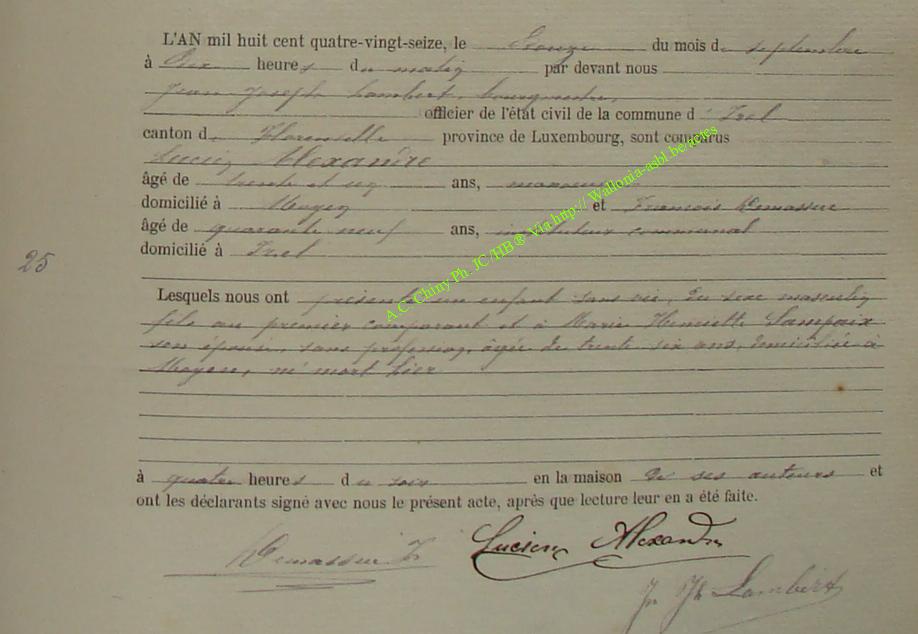 L'AN mil huit cent quatre-vingt-seize, le onze du mois de septembre
à dix heures du matin par devant nous
Jean Joseph Lambert, bourgmestre,
officier de l'état civil de la commune d'Izel
canton de Florenville province de Luxembourg, sont comparus
Lucien Alexandre
âgé de trente et un ans,
domicilié à Moyen et François Demasseur
âgé de quarante neuf ans, instituteur communal
domicilié à Izel
25
Lesquels nous ont présenté un enfant sans vie, du sexe masculin
fils au premier comparant et à Marie Henriette Lampaix
son épouse, sans profession, âgée de trente six ans, domiciliée à
Moyen, né mort hier
à quatre heures du soir en la maison de ses auteurs et
ont les déclarants signé avec nous le présent acte, après que lecture leur en a été faite.
Lucien Alexandre
Jn Jh Lambert
A C Chiny Ph. JC/HB® Via http:// Wallonia-asbl.be actes